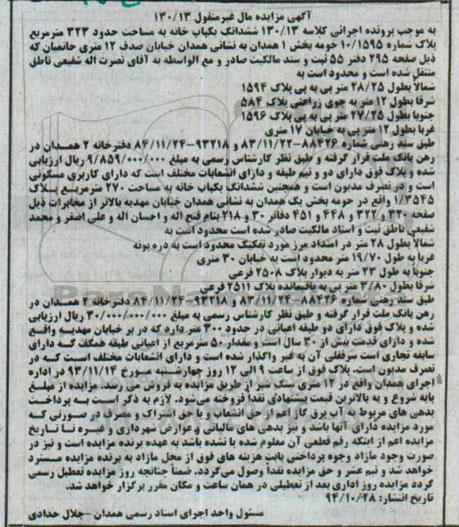 آگهی مزایده مال غیرمنقول ۱۳۰/۱۳
به موجب پرونده اجرائی کلاسه ۱۳۰/۱۳ ششدانگ یکباب خانه به مساحت حدود ۳۲۳ مترمربع
پلاک شماره ۱۰/۱۵۹۵ حومه بخش ۱ همدان به نشانی همدان خیابان صدف ۱۲ متری خانمیان که
ذیل صفحه ۲۹۵ دفتر ۵۵ ثبت و سند مالکیت صادر و مع الواسطه به آقای نصرت اله شفیعی ناطق
منتقل شده است و محدود است به
شمالا بطول ۲۸/۲۵ متر پی به پی پلاک ۱۵۹۴
شرقا بطول ۱۲ متر به جوی زراعتی پلاک ۵۸۴
جنوبا بطول ۲۷/۲۵ متر پی به پی پلاک ۱۵۹۶
غربا بطول ۱۲ متر پی به خیابان ۱۷ متری
طبق سند رهنی شماره ۸۸۴۲۶-۸۳/۱۱/۲۲ و ۹۳۲۱۸-۸۴/۱۱/۲۴ دفترخانه ۲ همدان در
رهن بانک ملت قرار گرفته و طبق نظر کارشناس رسمی به مبلغ ۹/۸۵۹/۰۰۰/۰۰۰ ریال ارزیابی
شده و پلاک فوق دارای دو و نیم طبقه و دارای انشعابات مختلف است که دارای کاربری مسکونی
است و در تصرف مدیون است و همچنین ششدانگ یکباب خانه به مساحت ۲۷۰ مترمربع پلاک
۱/۳۵۴۵ واقع در حومه بخش یک همدان به نشانی همدان خیابان مهدیه بالاتر از مخابرات ذیل
صفحه ۳۲۰ و ۳۲۲ و ۴۴۸ و ۴۵۱ دفاتر ۳۰ و ۲۱۸ بنام فتح اله و احسان اله و علی اصغر و محمد
شفیعی ناطق ثبت و اسناد مالکیت صادر شده است محدود است به
شمالا بطول ۲۸ متر در امتداد مرز مورد تفکیک محدود است به دره پونه
غربا به طول ۱۹/۷۰ متر محدود است به خیابان ۳۰ متری
جنوبا به طول ۲۳ متر به دیوار پلاک ۲۵۰۸ فرعی
شرقا بطول ۳/۸۰ متر پی به باقیمانده پلاک ۲۵۱۱ فرعی
طبق سند رهنی شماره ۸۸۴۲۶-۸۳/۱۱/۲۴ و ۹۳۲۱۸-۸۴/۱۱/۲۴ دفترخانه ۲ همدان در
رهن بانک ملت قرار گرفته و طبق نظر کارشناس رسمی به مبلغ ۳۰/۰۰۰/۰۰۰/۰۰۰ ریال ارزیابی
شده و پلاک فوق دارای دو طبقه اعیانی در حدود ۳۰۰ متر دارد که در بر خیابان مهدیه واقع
شده و دارای قدمت بیش از ۳۰ سال است و مقدار ۵۰ مترمربع از اعیانی طبقه همکف که دارای
سابقه تجاری است سرقفلی آن به غیر واگذار شده است و دارای انشعابات مختلف است که در
تصرف مدیون است. پلاک فوق از ساعت ۹ الی ۱۲ روز چهارشنبه مورخ ۹۳/۱۱/۱۴ در اداره
اجرای همدان واقع در ۱۲ متری سنگ شیر از طریق مزایده به فروش می‌رسد. مزایده از مبلغ
پایه شروع و به بالاترین قیمت پیشنهادی نقدا فروخته می‌شود. لازم به ذکر است به پرداخت
بدهی های مربوط به آب برق گاز اعم از حق انشعاب و یا حق اشتراک و مصرف در صورتی که
مورد مزایده دارای آنها باشد و نیز بدهی های مالیاتی و عوارض شهرداری و غیره تا تاریخ
مزایده اعم از اینکه رقم قطعی آن معلوم شده یا نشده باشد به عهده برنده مزایده است و نیز در
صورت وجود مازاد وجوه پرداختی بابت هزینه های فوق از محل مازاد به برنده مزایده مسترد
خواهد شد و نیم عشر و حق مزایده نقدا وصول می‌گردد. ضمنا چنانچه روز مزایده تعطیل رسمی
گردد مزایده روز اداری بعد از تعطیلی در همان ساعت و مکان مقرر برگزار خواهد شد.
تاریخ انتشار: ۹۴/۱۰/۲۸
مسئول واحد اجرای اسناد رسمی همدان - جلال حدادی